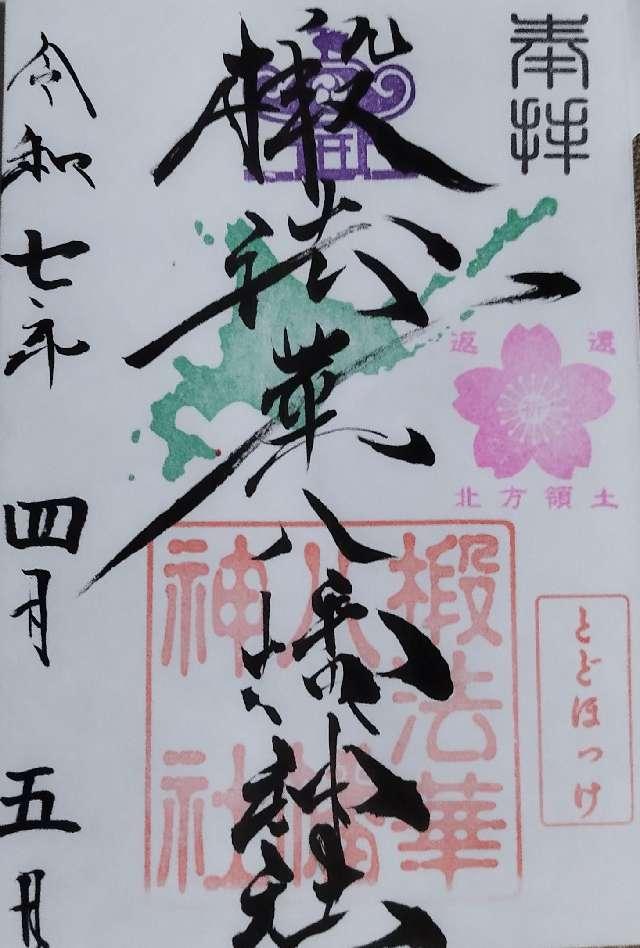 奉拝
返還
北方領土
とどほっけ
椴法華八幡神社
椴法華八幡神社
令和七年四月五日